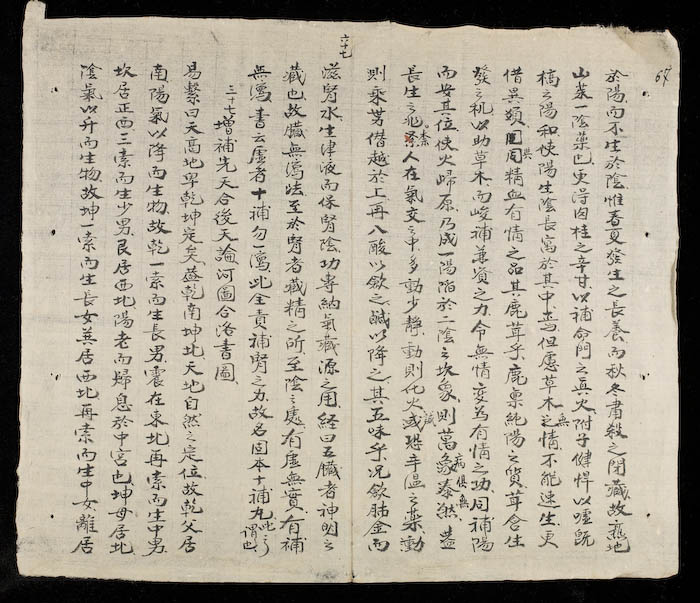 67
於陽而不生於陰惟春夏發生之長養而秋冬肅殺之閉藏故熟地
山茱一陰藥也更得肉桂之辛甘以補命門之真火附子健悍以噓旣
槁之陽和使陽生陰長寓於其中焉但慮草木之無情不能速生更
借異類同其精血有情之品其鹿茸乎鹿稟純陽之質茸含生
發之机以助草木而峻補兼資之力令無情变為有情之功同補陽
而安其位使火歸原乃成一陽陷於二陰之坎象則萬象泰然病俱無盖
長生之兆素人在氣交之中多動少靜動則化火或恐辛温之藥動
則乘势僭越於上再入酸以歛之鹹以降之其五味乎况歛肺金而
六十七
滋腎水生津液而保腎陰功專納氣藏源之用経曰五臓者神明之
藏也故臓無瀉法至於腎者藏精之所至陰之處有虛無實有補
無瀉書云虛者十補勿一瀉此全責補腎之為故名固本十補丸此之謂也
三十七增補先天合後天論河圖合洛書圖
易繫曰天高地卑乾坤定矣盖乾南坤北天地自然之定位故乾父居
南陽氣以降而生物故乾一索而生長男震在東北再索而生中男
坎居正西三索而生少男艮居西北陽老而歸息於中宫也坤母居北
陰氣以升而生物故坤一索而生長女巽居西北再索而生中女離居